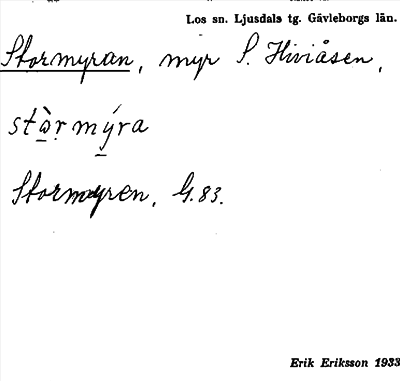 Los sn. Ljusdals tg. Gävleborgs län.
Stormyran, myr S. Hiviåsen,
stàrmýra
Stormyren, G. 83.
Erik Eriksson 1933